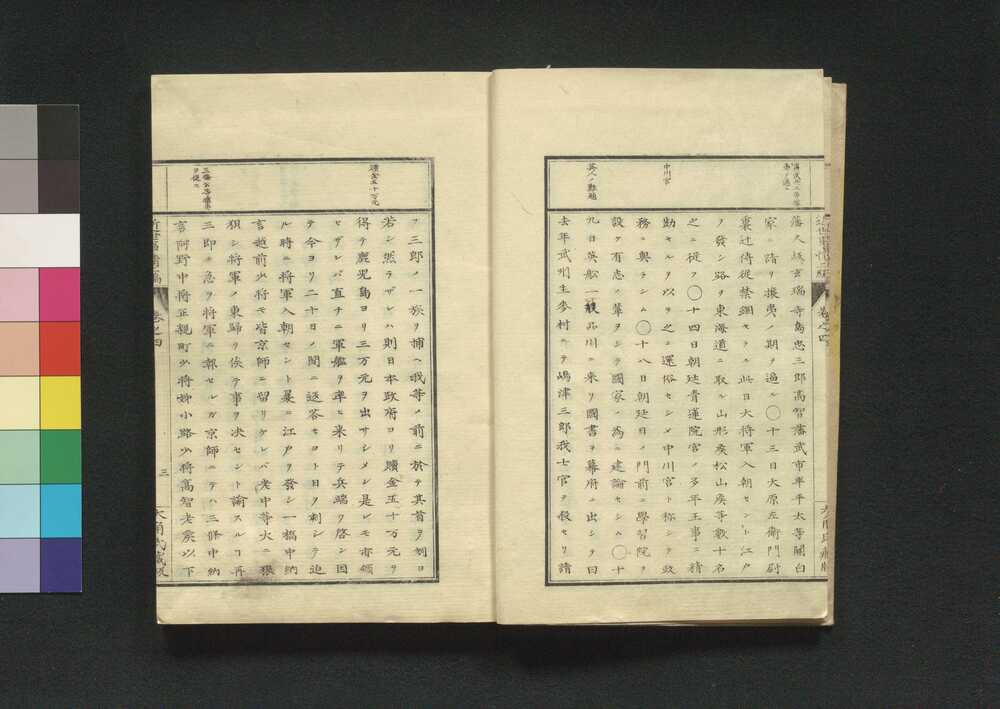 藩久坂玄瑞寺島忠三郎高智藩武市半平太等關白
家ニ請リ攘夷ノ期ヲ過ル〇十三日大原左衛門尉
裏辻侍從禁錮セラル此日大將軍入朝セント江戸
ノ發シ路ヲ東海道ニ取ル山形矦松山矦等數十名
之ニ從フ〇十四日朝廷青蓮院宮ノ多年王事ニ精
勤セルヲ以テ之ニ還俗セシメ中川宮ト称シテ政
務ニ與ラシム〇十八日朝廷日ノ門前ニ學習院ヲ
設ケ有志ノ輩ヲシテ國家ノ為ニ建論セシム〇十
九日英船一艘品川ニ来リ國書ヲ幕府ニ出シテ曰
去年武州生麥村ニテ嶋津三郎我士官ヲ殺セリ請
中川宮
英人ノ難題
フ三郎ノ一族ヲ捕ヘ我等ノ前ニ於テ其首ヲ刎ヨ
若シ然ラザレハ則日本政府ヨリ贖金五十万元ヲ
得テ鹿児島ヨリ三万元ヲ出サシメン是レモ亦領
セザレバ直チニ軍艦ヲ率ヒ来リテ兵端ヲ啓ン因
テ今ヨリ二十日ノ間ニ返答セヨト日ヲ刺シテ迫
ル時ニ將軍入朝セント暴ニ江戸ヲ發シ一橋中納
言越前少將モ皆京師ニ留リケレバ老中等大ニ狼
狽シ將軍ノ東歸ヲ俟テ事ヲ决セント諭スルコ再
三即チ急ヲ將軍ニ報セルガ京師ニテハ三條中納
言阿野中將正親町少將姉小路少將高智老矦以下
贖金五十万元
卷之四
三